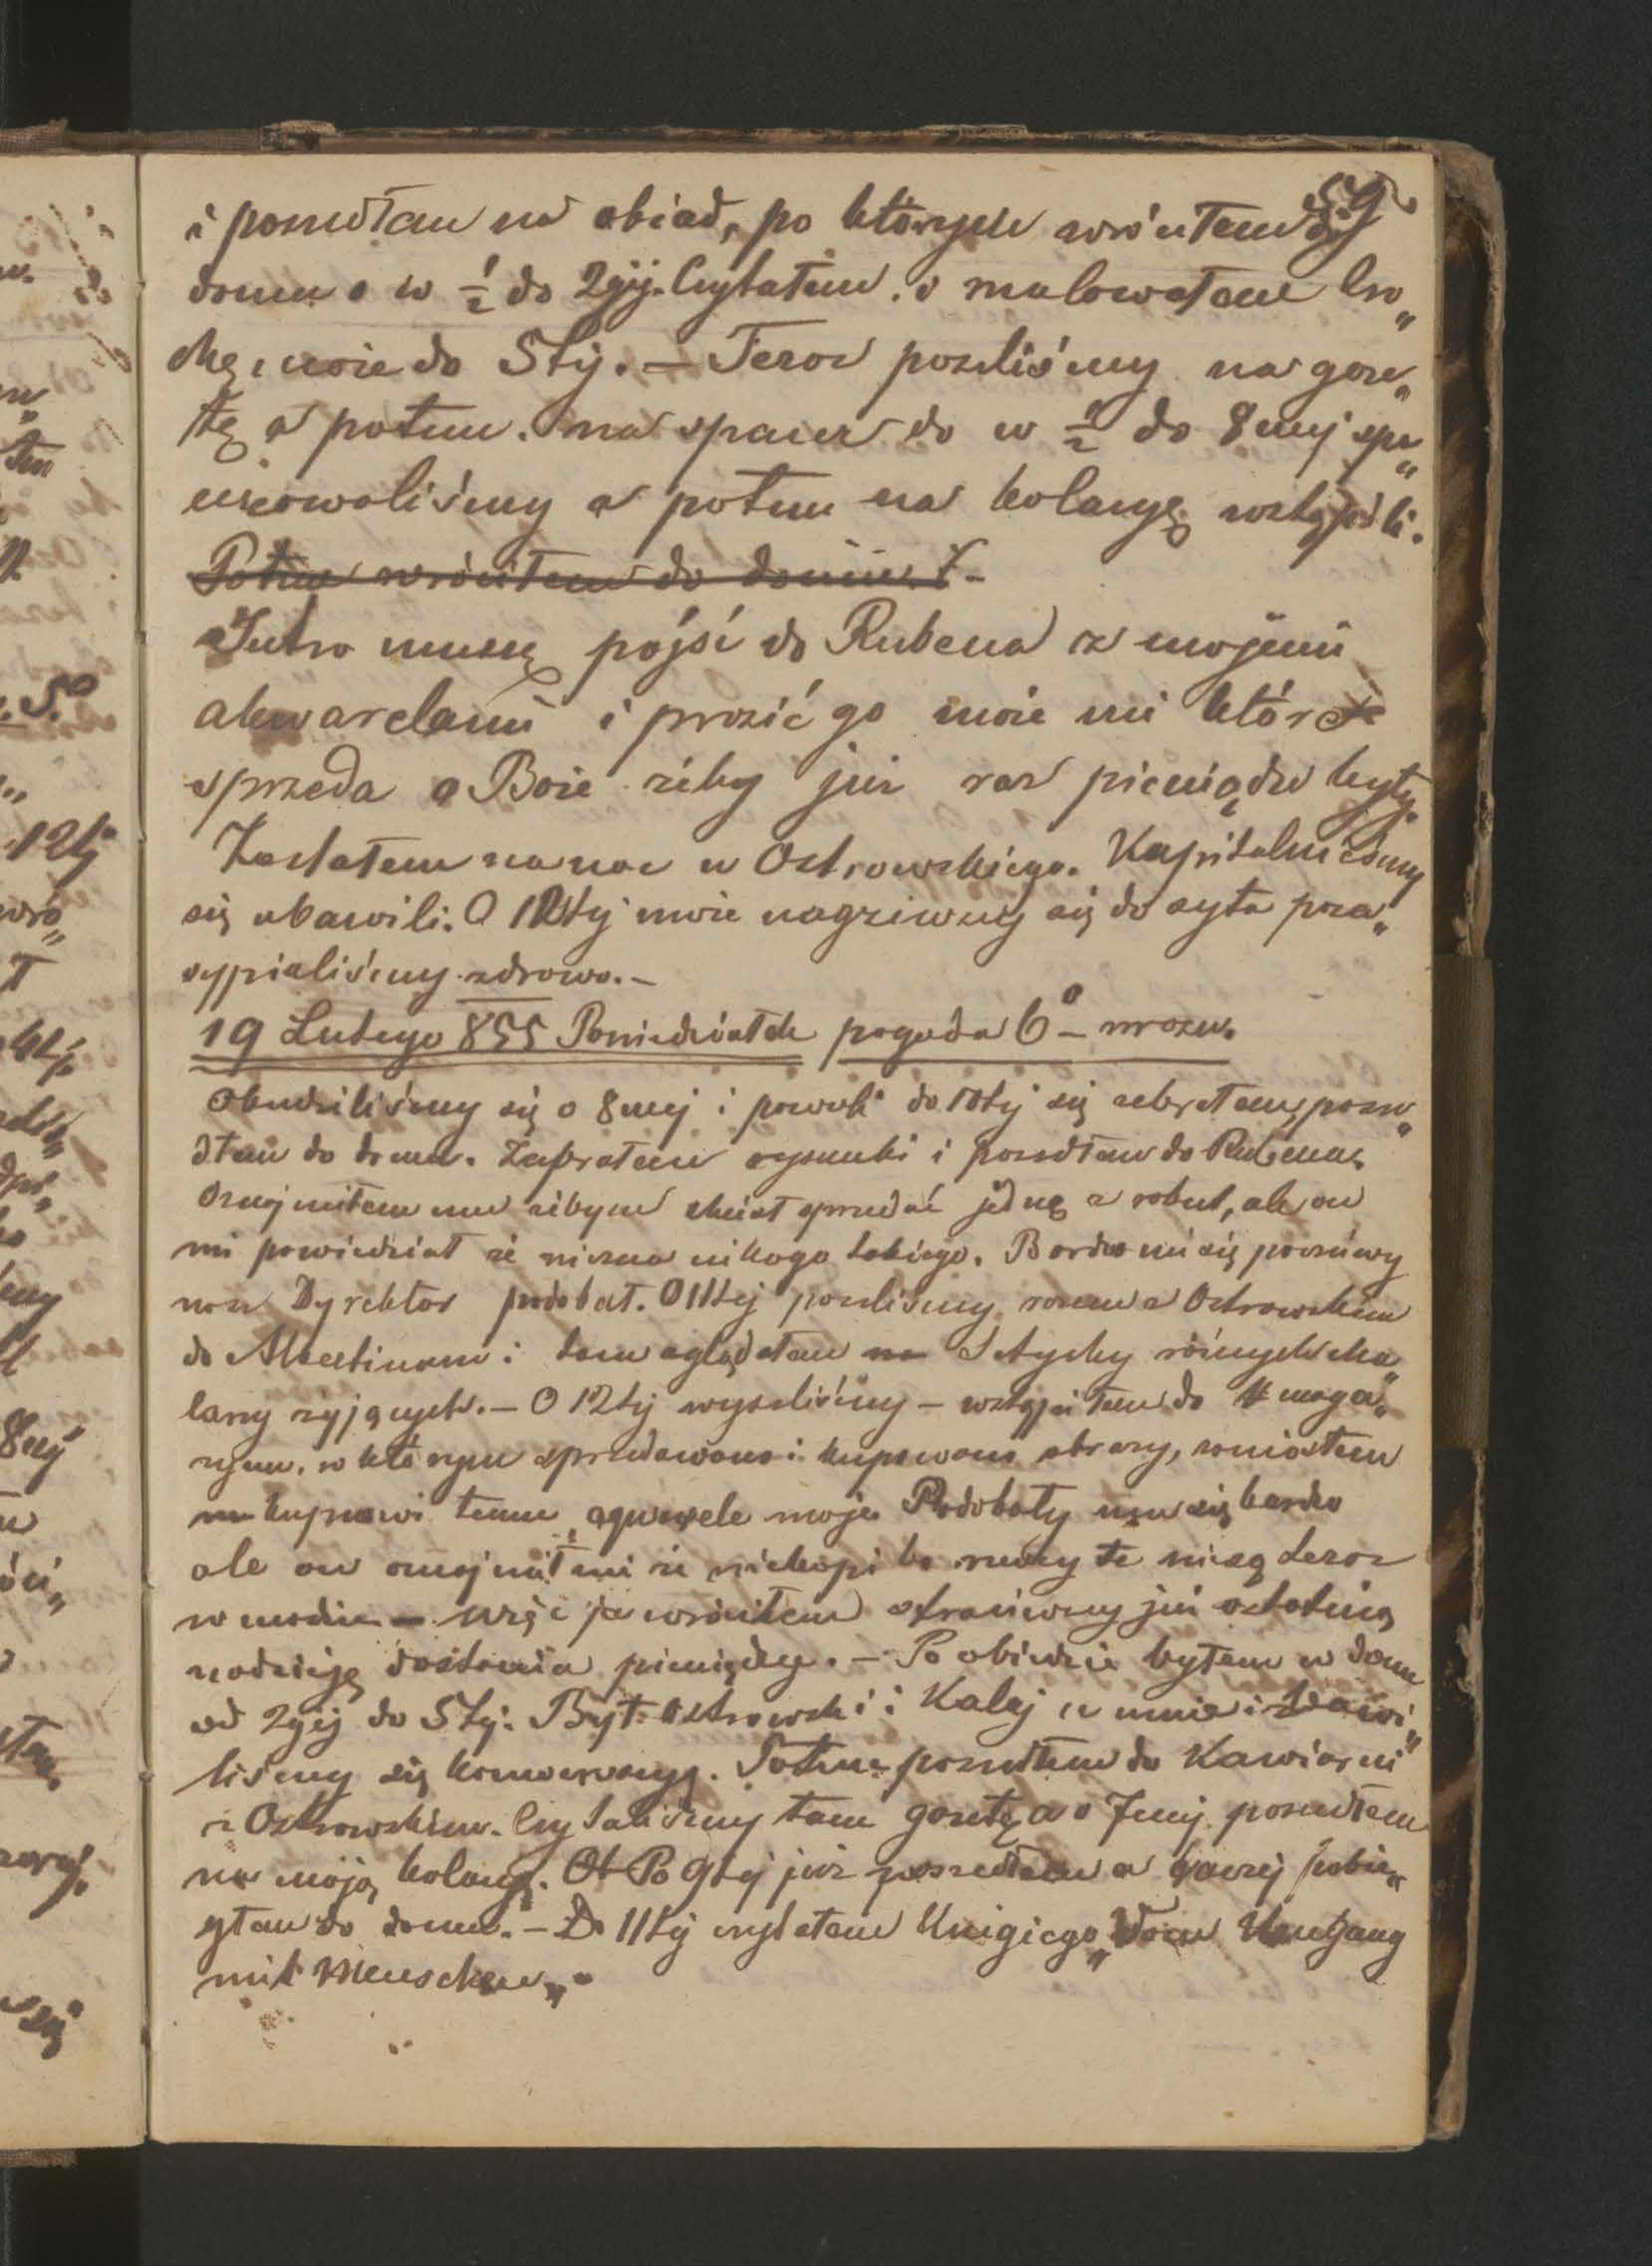 59
i poszedłam na obiad, po którym wróciłem do
domu o w ½ do 2gij. Czytałem. o malowałem tro„
chę, może do 5tij. — Teraz poszliśmy na gaze„
tę a potem. na spacer do w ½ do 8mej spa„
cerowaliśmy a potem na kolacyę wstąpili.
Potem wróciłem do domu. 
Jutro muszę pójść do Rubena z mojemi
akwarelami i prosić go może mi które
sprzeda o Boże żeby już raz pieniądze były.
Zostałem na noc u Ostrowskiego. Kapitalnieśmy
się ubawili. O 12tej może nagziwszy się do syta poza„
sypialiśmy zdrowo. —
19 Lutego 855 Poniedziałek pogoda 6° — mrozu.
Obudziliśmy się o 8mej i powoli do 10tej się zebrałem, posze„
dłam do domu. Zabrałem rysunki i poszedłam do Rubena.
Oznajmiłem mu żebym chciał sprzedać jedną z robut, ale on
mi powiedział że niezna nikogo takiego. Bardzo mi się poczciwy
nasz Dyrektor podobał. O 11tej poszliśmy razem z Ostrowskim
do Albertinum i tam oglądałem Sztychy różnych ma„
larzy żyjących. — O 12tej wyszliśmy — wstąpiłem do maga„
zynu, w którym sprzedawano i kupowano obrazy, zaniosłem
kupcowi temu aquarele moje. Podobały mu się bardzo
ale on oznajmił mi że niekupi bo rzeczy te niesą teraz
w modzie — więc ja wróciłem straciwszy już ostatnią
nadzieję dostania pieniędzy. — Po obiedzie byłem w domu
od 2giej do 5tej. Był Ostrowski i Kalej u mnie i bawi„
liśmy się konwersacyą. Potem poszedłem do Kawiarni
z Ostrowskim. Czytaliśmy tam gazetę a o 7mej poszedłem
na moją kolacyę. Po 9tej już poszedłem a raczej pobie„
głam do domu. — Do 11tej czytałem Knigiego „Vom Umgang
mit Menschen„.